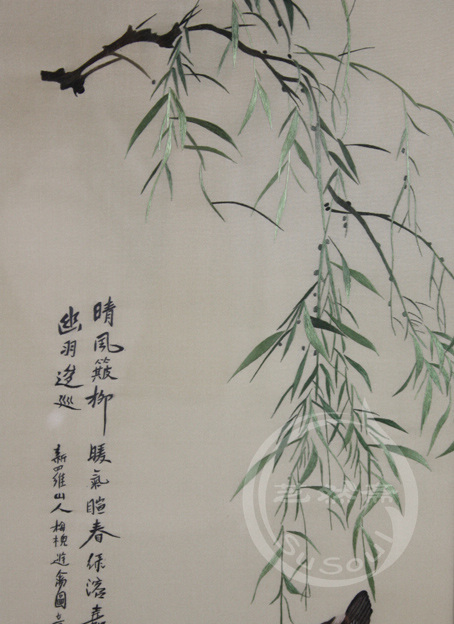 晴風簸柳 暖氣暄春 綠溶嘉
幽羽逡巡
新羅山人 梅 遊禽圖
SUSOUL